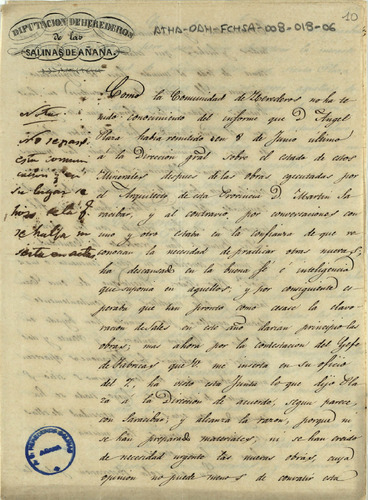 DIPUTACION DE HEREDEROS
de las
SALINAS DE AÑANA.
ATHA-DAH-FCHSA-008-018-06
10
Nota
No se pasó
esta comuni
cación y en
su lugar se
hizo de la q.e
se halla in
serta en acta
Como la Comunidad de Herederos no ha te
nido conocimiento del informe que D. Angel
Plaza habia remitido con 8 de Junio ultimo
á la Direccion gral sobre el estado de esos
Minerales despues de las obras egecutadas por
el Arquitecto de esta Provincia D. Martin Sa
racibar, y al contrario, por conversaciones con
uno y otro estaba en la confianza de que re
conocian la necesidad de practicar obras nuevas,
ha descansado en la buena fé é inteligencia
que suponia en aquellos, y por consiguiente es
peraba que tan pronto como cesase la elavo
racion de sales en este año darian principio las
obras; mas ahora por la contestacion del Gefe
de Fabricas que V. me inserta en su oficio
del 7, ha visto esta Junta lo que dijo Pla
za á la Direccion de acuerdo, segun parece,
con Saracibar, y alcanza la razon, porque ni
se han preparado materiales, ni se han creido
de necesidad urgente las nuevas obras, cuya
opinion no puede menos de combatir esta
AÑANA